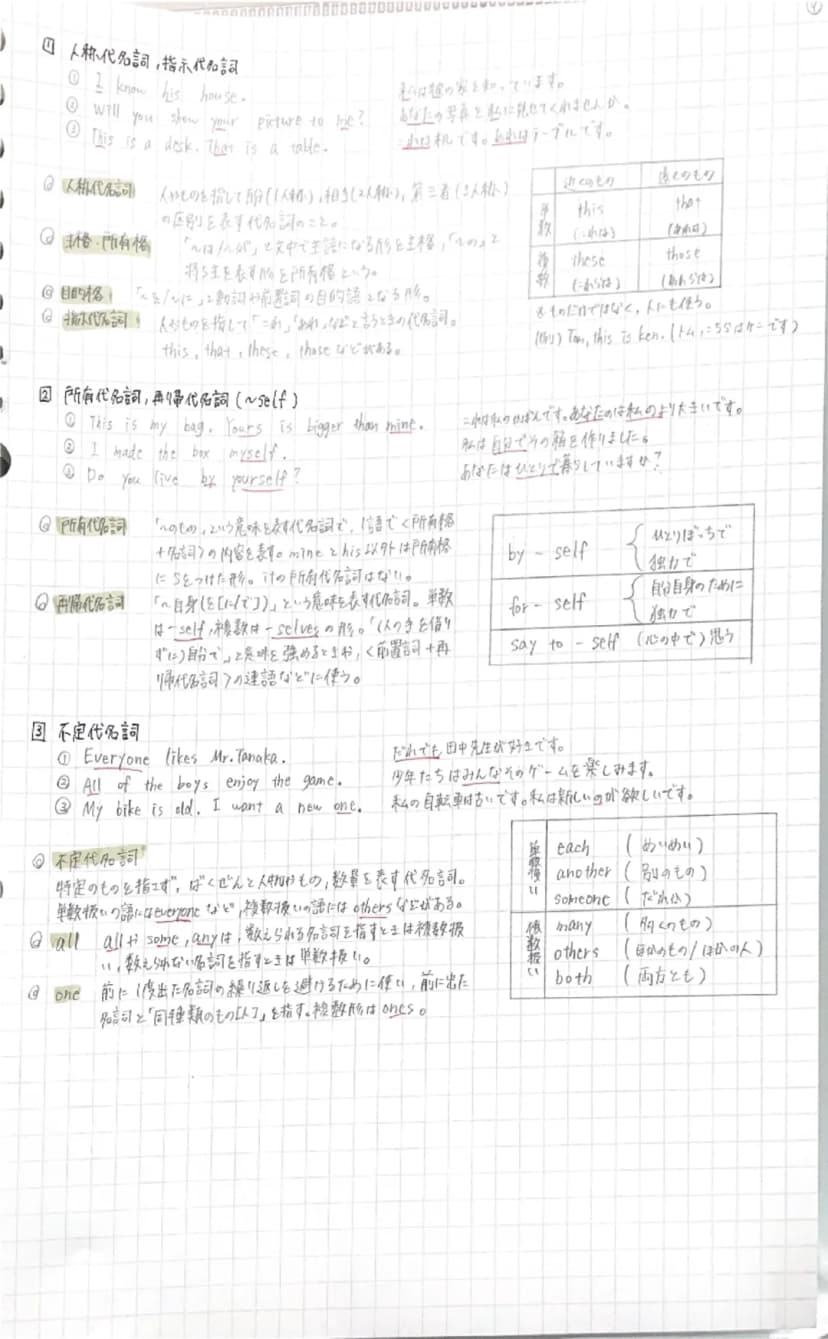 1 人称代名詞,指示代名詞
① I know his house. 私は彼の家を知っています。
② Will you show your picture to me? あなたの写真を私に見せてくれませんか。
③ This is a desk. That is a table. これは机です。あれはテーブルです。
人称代名詞 人やものを指して自分(1人称),相手(2人称),第三者(3人称)
の区別を表す代名詞のこと。
主格・所有格 「~は/~が」と文中で主語になる形を主格,「~の」と
持ち主を表す形を所有格という。
目的格 「~を/~に」と動詞や前置詞の目的語となる形。
指示代名詞 人やものを指して「これ」「あれ」などと言うときの代名詞。
this, that, these, those などがある。
近くのもの 遠くのもの
単数 this (これは) that (あれは)
複数 these (これらは) those (あれらは)
ものだけではなく、人にも使う。
(例) Tom, this is Ken. (トム,こちらはケンです)
2 所有代名詞,再帰代名詞(~self)
① This is my bag. Yours is bigger than mine. これは私のかばんです。あなたのは私のより大きいです。
② I made the box myself. 私は自分でその箱を作りました。
③ Do you live by yourself? あなたはひとりで暮らしていますか?
所有代名詞 「~のもの」という意味を表す代名詞で、1語で<所有格
+名詞>の内容を表す。mine と his 以外は所有格
に s をつけた形。it の所有代名詞はない。
再帰代名詞 「~自身(を[に/で])」という意味を表す代名詞。単数
は -self,複数は -selves の形。「(人の手を借り
ずに)自分で」と意味を強めるときや,<前置詞+再
帰代名詞>の連語などに使う。
by - self { ひとりぼっちで
独力で
for - self { 自分自身のために
独力で
say to - self (心の中で)思う
3 不定代名詞
① Everyone likes Mr.Tanaka. だれでも田中先生が好きです。
② All of the boys enjoy the game. 少年たちはみんなそのゲームを楽しみます。
③ My bike is old. I want a new one. 私の自転車は古いです。私は新しいのが欲しいです。
不定代名詞
特定のものを指さず、ばくぜんと人物やもの,数量を表す代名詞。
単数扱いの語には everyone など,複数扱いの語には others などがある。
all all や some, any は,数えられる名詞を指すときは複数扱
い,数えられない名詞を指すときは単数扱い。
one 前に1度出た名詞の繰り返しを避けるために使い,前に出た
名詞と「同種類のもの[人]」を指す。複数形は ones。
単数扱い each (めいめい)
another (別のもの)
someone (だれか)
複数扱い many (多くのもの)
others (ほかのもの/ほかの人)
both (両方とも)